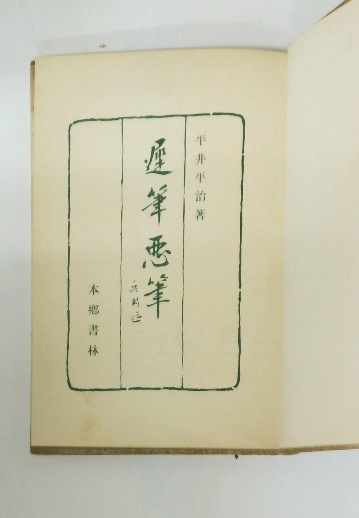 平井平治著
遲筆悪筆
本郷書林